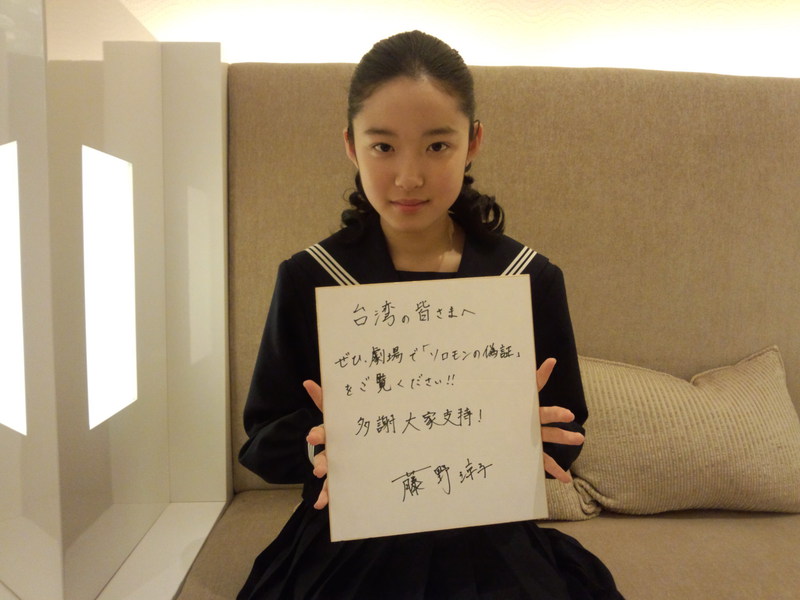 台湾の皆さまへ
ぜひ、劇場で「ソロモンの偽証」
をご覧ください!!
多謝大家支持!
藤野涼子